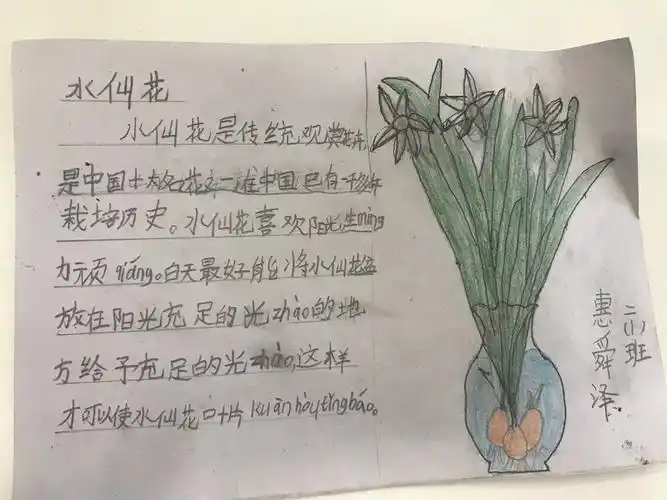 水仙花
水仙花是传统观赏花卉,
是中国十大名花之一,在中国已有一千多年
栽培历史。水仙花喜欢阳光,生mìng
力顽qiáng。白天最好能将水仙花盆
放在阳光充足的光zhào的地
方给予充足的光zhào,这样
才可以使水仙花叶片kuānhòutǐngbáo。
二(1)班
惠舜泽